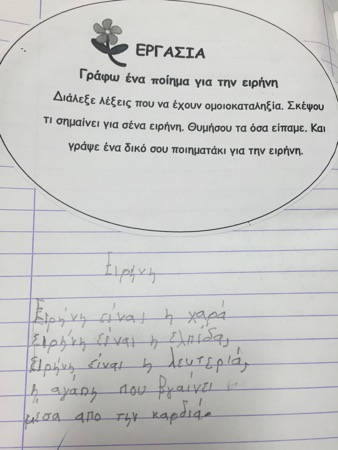 ΕΡΓΑΣΙΑ
Γράφω ένα ποίημα για την ειρήνη
Διάλεξε λέξεις που να έχουν ομοιοκαταληξία. Σκέψου
τι σημαίνει για σένα ειρήνη. Θυμήσου τα όσα είπαμε. Και
γράψε ένα δικό σου ποιηματάκι για την ειρήνη.
Ειρήνη
Ειρήνη είναι η χαρά
Ειρήνη είναι η ελπίδα,
Ειρήνη είναι η λευτεριά,
η αγάπη που βγαίνει
μέσα απο την καρδιά.